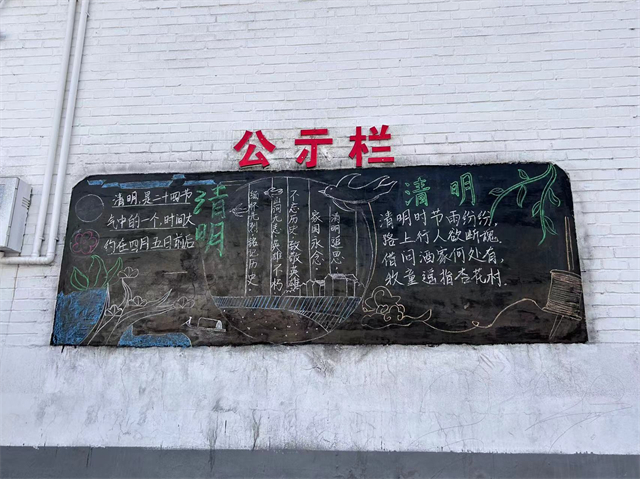 公示栏
清明是二十四节
气中的一个,时间大
约在四月五日前后
清明
清明追思
家国永念
不忘历史 致敬英雄
山河无恙 英雄不朽
铭记历史
清明
清明时节雨纷纷,
路上行人欲断魂。
借问酒家何处有,
牧童遥指杏花村.